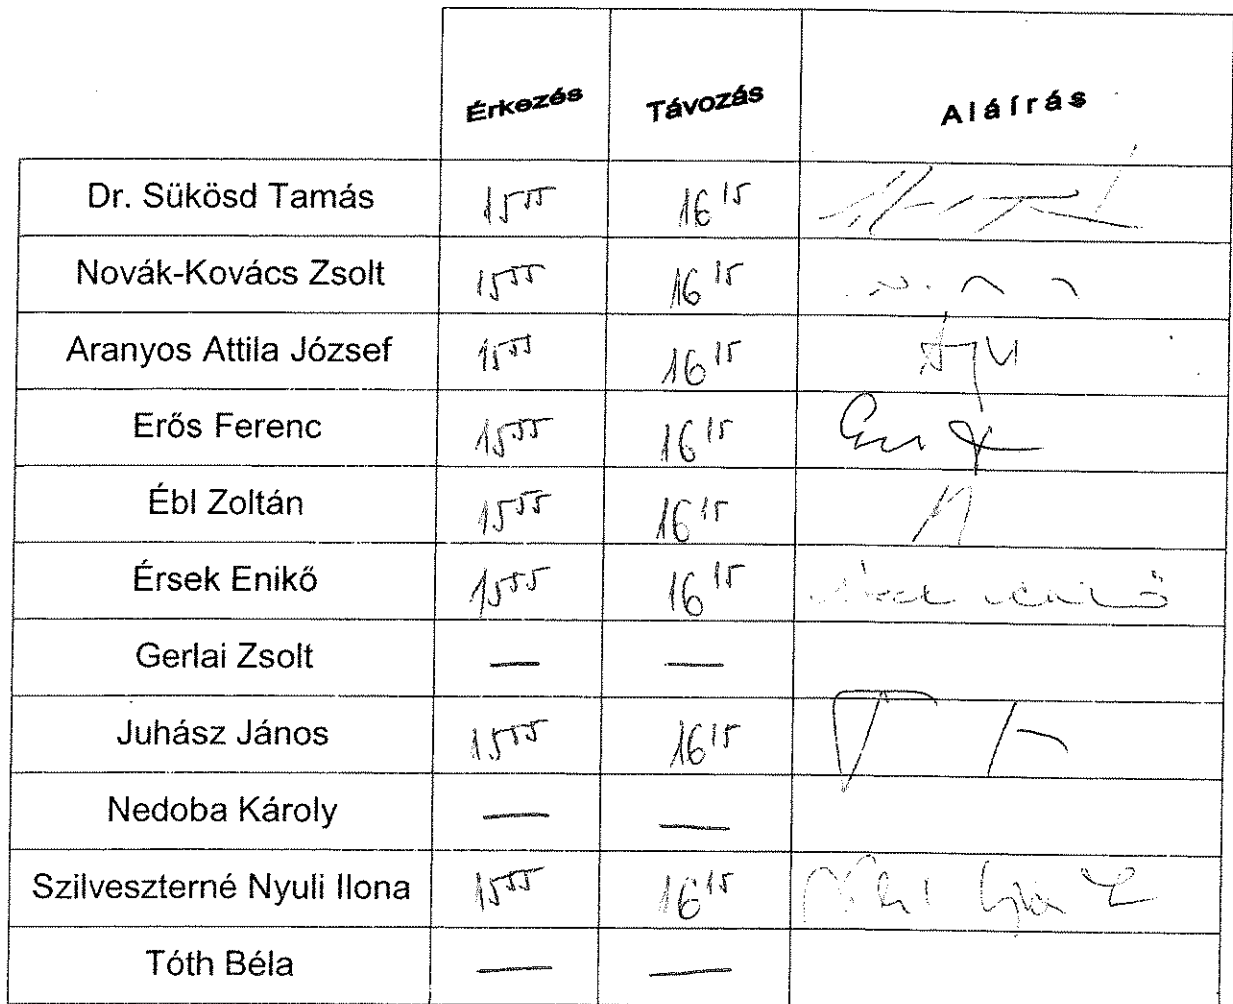 Érkezés Távozás Aláírás
Dr. Sükösd Tamás 15⁵⁵ 16¹⁵
Novák-Kovács Zsolt 15⁵⁵ 16¹⁵
Aranyos Attila József 15⁵⁵ 16¹⁵
Erős Ferenc 15⁵⁵ 16¹⁵
Ébl Zoltán 15⁵⁵ 16¹⁵
Érsek Enikő 15⁵⁵ 16¹⁵
Gerlai Zsolt — —
Juhász János 15⁵⁵ 16¹⁵
Nedoba Károly — —
Szilveszterné Nyuli Ilona 15⁵⁵ 16¹⁵
Tóth Béla — —